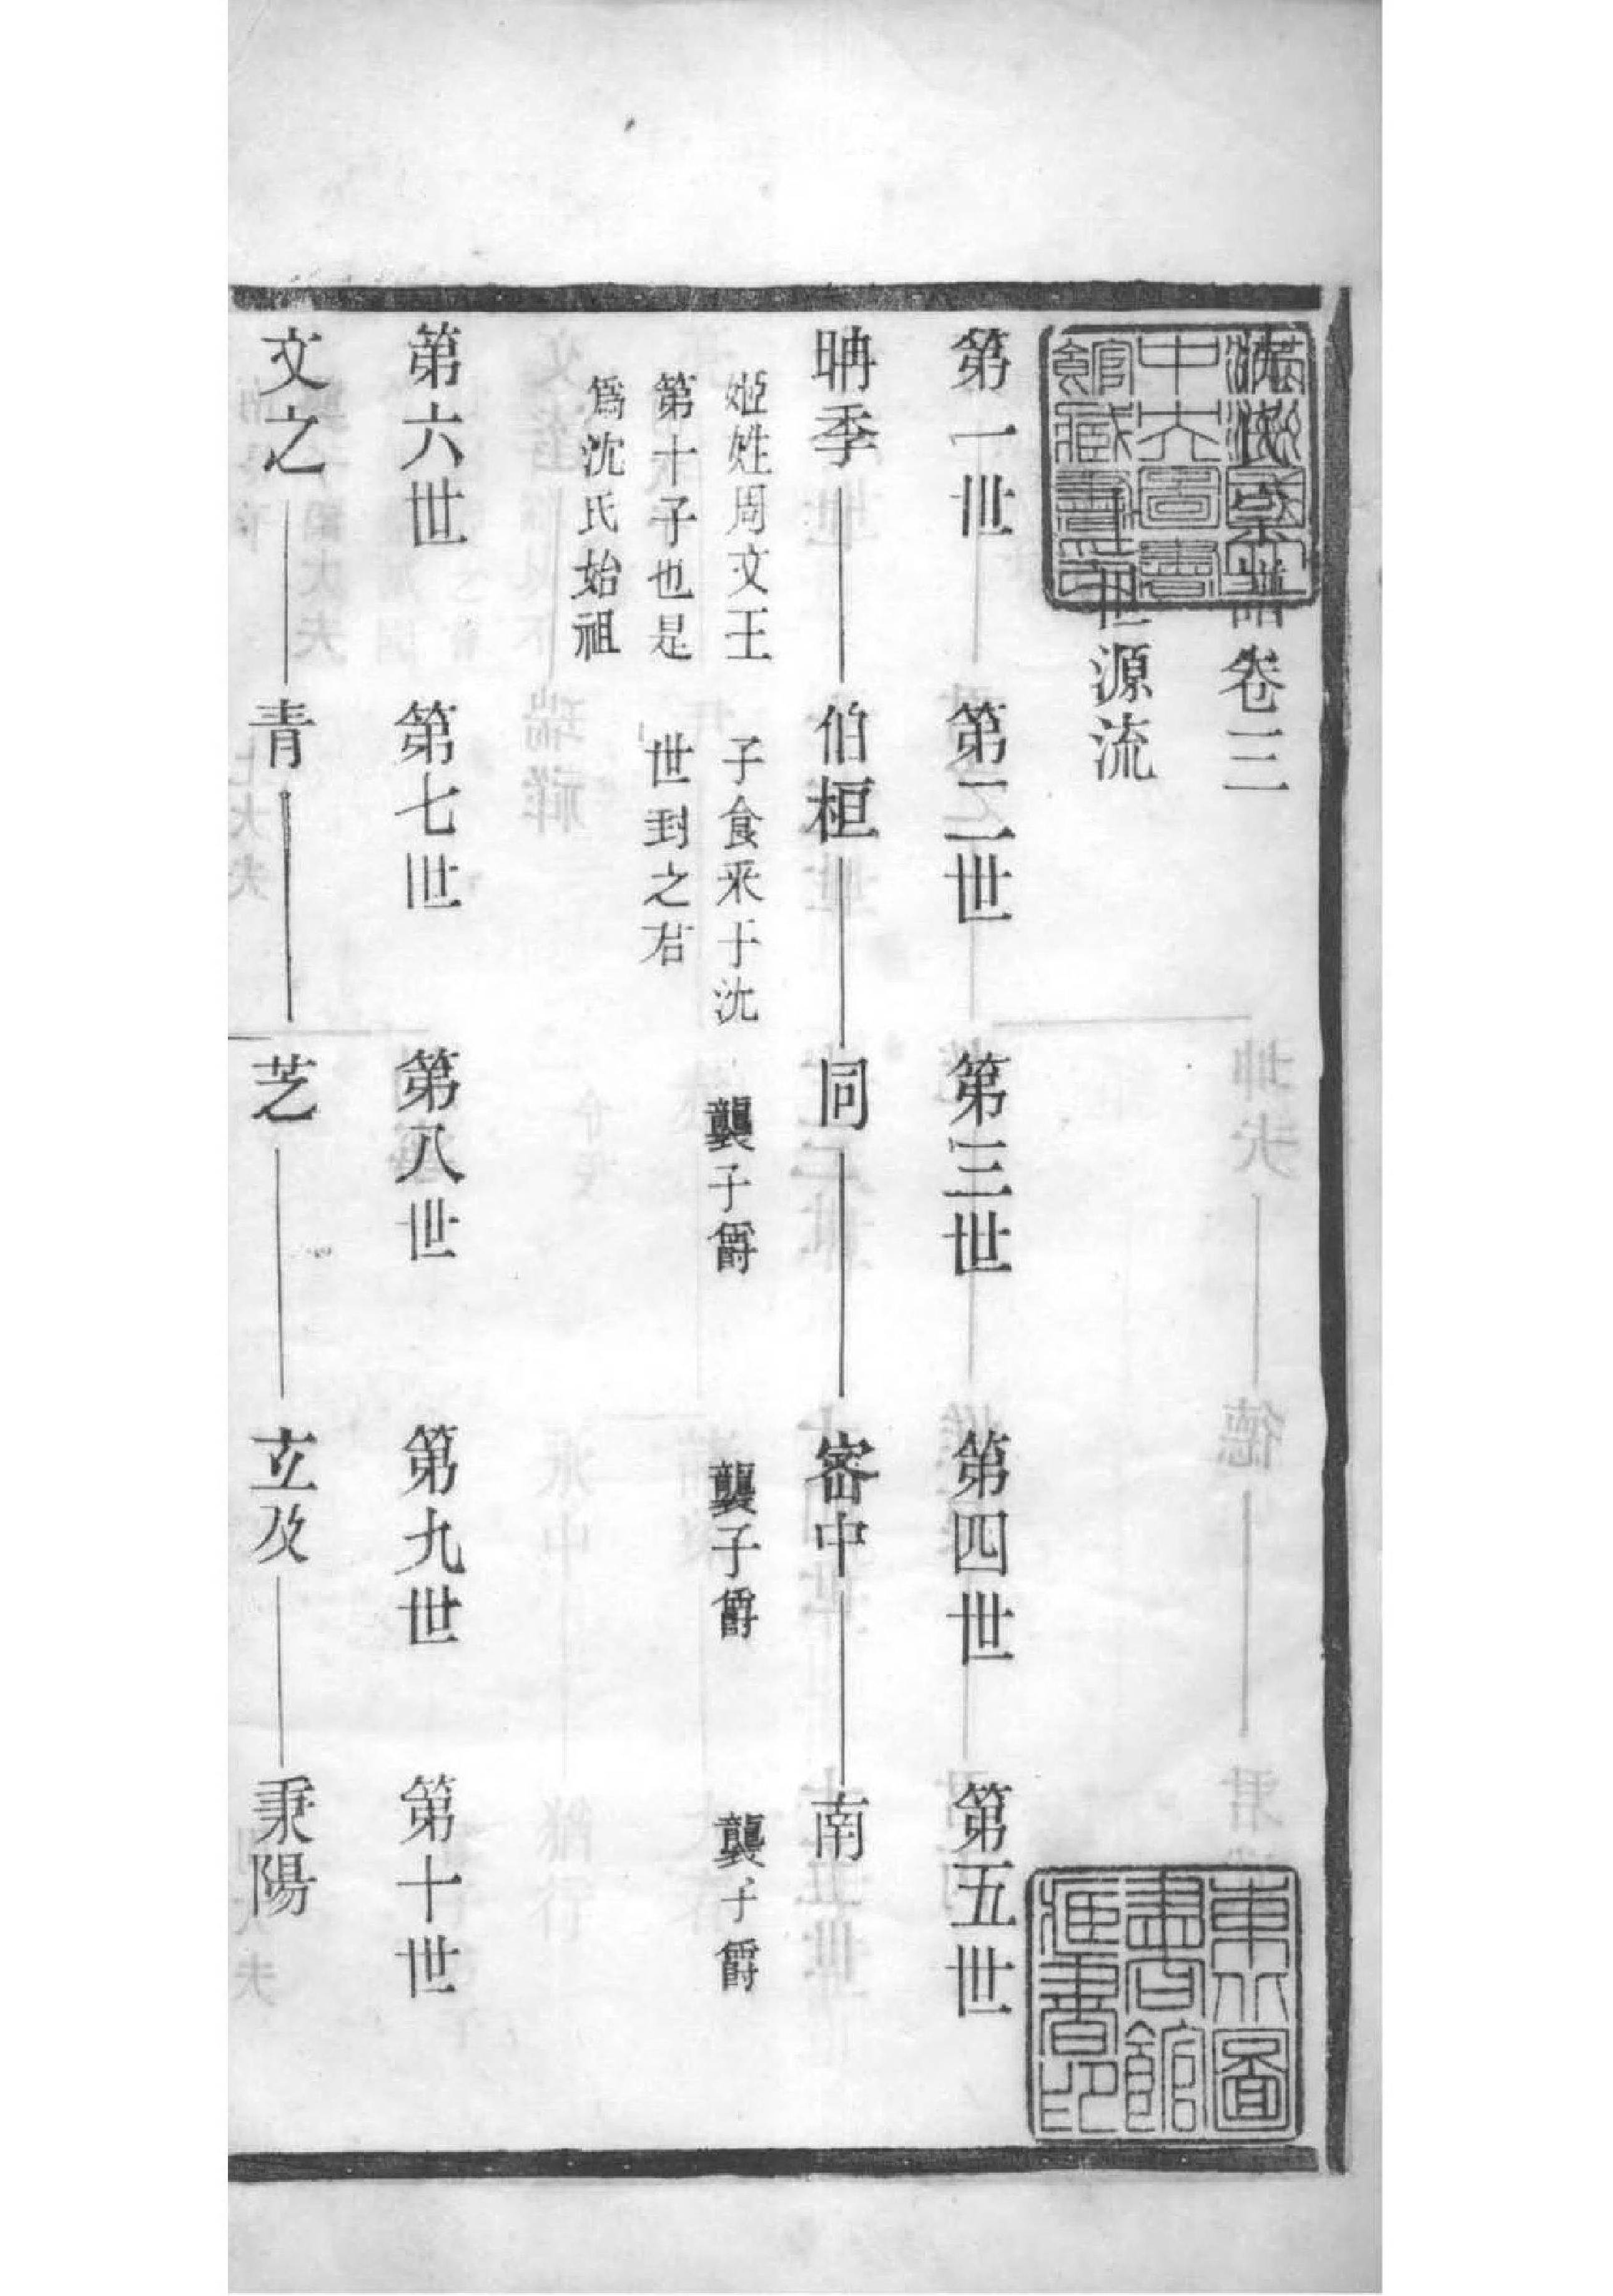 沈氏宗譜卷三
世源流
第一世 第二世 第三世 第四世 第五世
聃季 伯桓 同 密中 南
姬姓周文王
第十子也是
爲沈氏始祖
子食采于沈
世封之君
襲子爵
襲子爵
襲子爵
第六世 第七世 第八世 第九世 第十世
文之 青 芝 立及 秉陽
東北圖
書館
藏書印